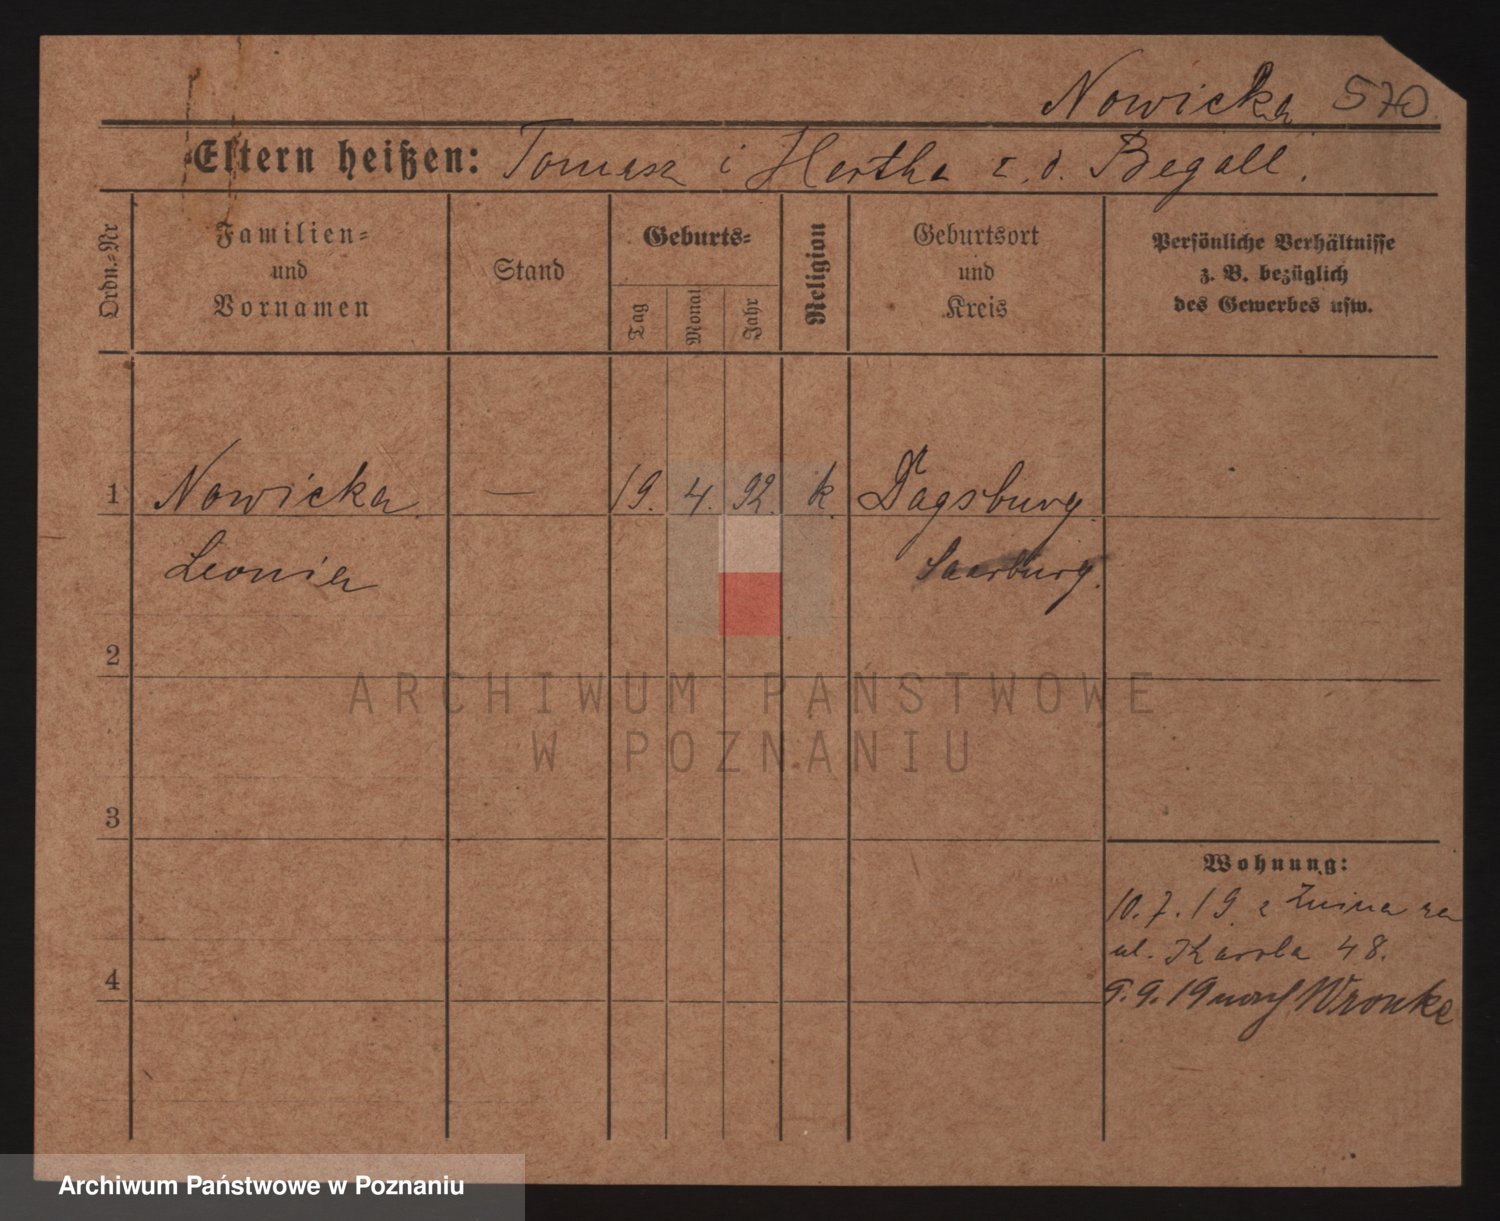 Nowicka 570.
Eltern heißen: Tomasz i Hertha z. d. Begall.
Ordn.-Nr
Familien- und Vornamen
Stand
Geburts-
Tag
Monat
Jahr
Religion
Geburtsort und Kreis
Persönliche Verhältnisse
z. B. bezüglich
des Gewerbes usw.
1 Nowicka — 19. 4. 92. k. Dagsburg.
Leonia Saarburg.
2
3
Wohnung:
10. 7. 19 z Żnina na
ul. Karola 48.
4
9. 9. 19 nach Wronke
ARCHIWUM PAŃSTWOWE
W POZNANIU
Archiwum Państwowe w Poznaniu